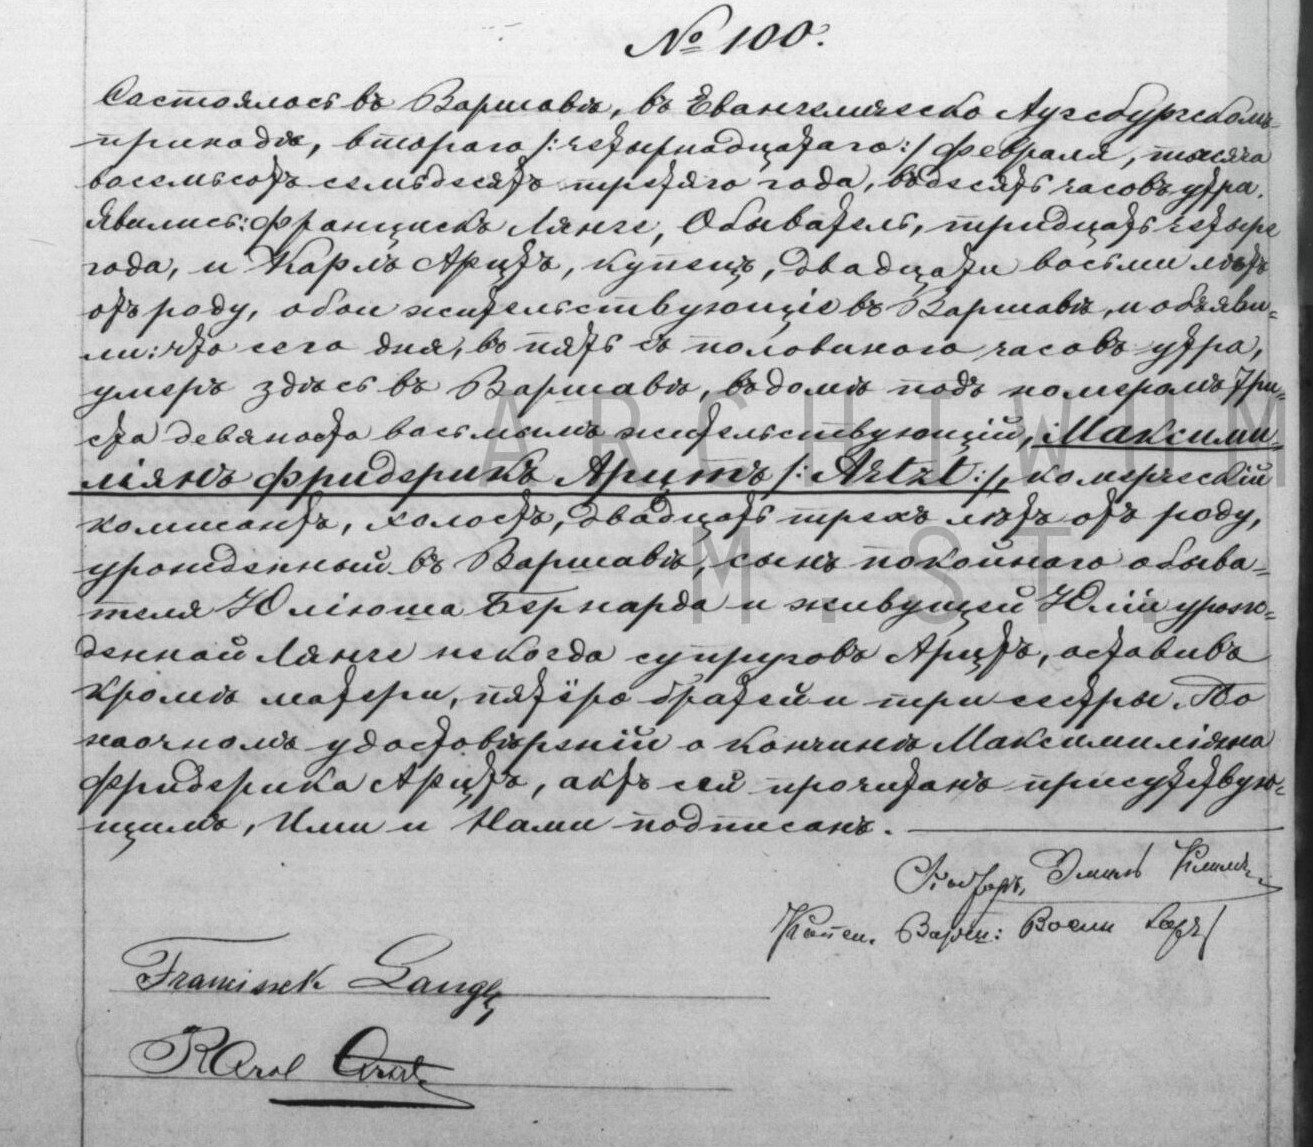 № 100.
Состоялось въ Варшавѣ, въ Евангелическо Аугсбургскомъ
приходѣ, втораго /:четырнадцатаго:/ Февраля, тысяча
восемьсотъ семьдесятъ третяго года, въ десять часовъ утра.
Явились: Францискъ Лянге, Обыватель, тридцать четыре
года, и Карлъ Арцтъ, купецъ, двадцати восьми лѣтъ
отъ роду, обои жительствующіе въ Варшавѣ, и объяви=
ли: что сего дня, въ пять съ половиною часовъ утра,
умеръ здѣсь въ Варшавѣ, въ домѣ подъ номеромъ три=
ста девяноста восьмымъ жительствующій, Максими=
ліянъ Фридерикъ Арцтъ /: Artzt :/, комерческій
комисантъ, холостъ, двадцать трехъ лѣтъ отъ роду,
урожденный въ Варшавѣ, сынъ покойнаго обыва=
теля Юліюша Бернарда и живущей Юліи урож=
денной Лянге некогда супруговъ Арцтъ, оставивъ
кромѣ матери, пятёро братей и три сестры. По
наочномъ удостовѣреніи о кончинѣ Максимиліяна
Фридерика Арцтъ, актъ сей прочитанъ присутствую=
щимъ, Ими и Нами подписанъ.
Пасторъ, Эмиль
Варш:
Franciszek Lange
Karol Artzt
ARCHIWUM
M. ST.